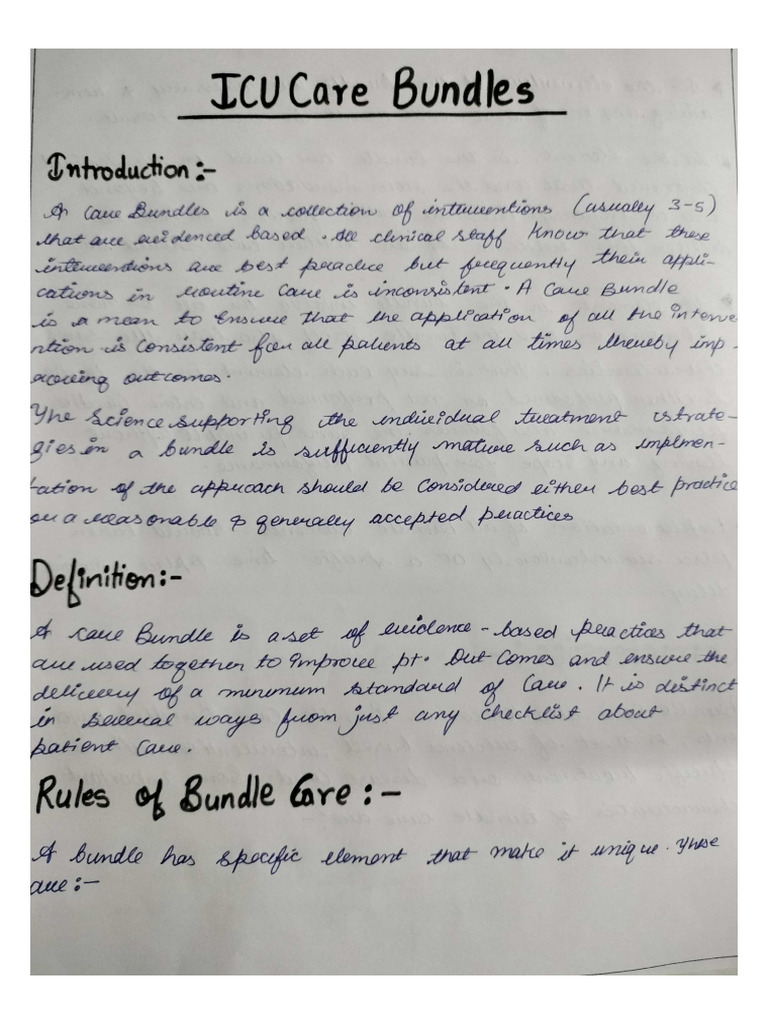 ICU Care Bundles
Introduction:-
A Care Bundles is a collection of interventions (usually 3-5)
that are evidenced based. All clinical staff know that these
interventions are best practice but frequently their appli-
cations in routine care is inconsistent. A Care Bundle
is a mean to ensure that the application of all the interve
ntion is consistent for all patients at all times thereby imp-
roving outcomes.
The science supporting the individual treatment strate-
gies in a bundle is sufficiently mature such as implmen-
tation of the approach should be considered either best practice
or a reasonable & generally accepted practices
Definition:-
A care Bundle is a set of evidence-based practices that
are used together to improve pt. Out comes and ensure the
delivery of a minimum standard of care. It is distinct
in several ways from just any checklist about
patient care.
Rules of Bundle Care:-
A bundle has specific element that make it unique. These
are:-